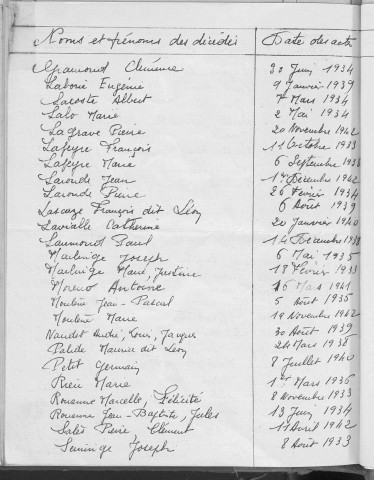 Noms et prénoms des décédés Date des actes
Gramond Clémence 30 Juin 1934
Laborie Eugénie 9 Janvier 1939
Lacoste Albert 7 Mars 1934
Lalo Marie 2 Mai 1934
Lagrave Pierre 20 Novembre 1942
Lafeyre François 11 Octobre 1933
Lafeyre Marie 6 Septembre 1938
Laronde Jean 1er Décembre 1942
Laronde Pierre 26 Février 1934
Lascaze François dit Léon 6 Août 1939
Lavialle Catherine 20 Janvier 1940
Laumond Paul 14 Décembre 1938
Mauringe Joseph 6 Mai 1935
Mauringe Marie, Justine 18 Février 1933
Moreno Antoine 16 Mars 1941
Moulène Jean-Pascal 5 Août 1935
Moulène Marie 19 Novembre 1942
Naudet André, Louis, Jacques 30 Août 1939
Palide Maurice dit Léon 24 Mars 1938
Petit Germain 8 Juillet 1940
Rieu Marie 1er Mars 1936
Rouanne Marcelle, Félicité 8 Novembre 1933
Rouanne Jean-Baptiste, Jules 13 Juin 1934
Salès Pierre Clément 11 Avril 1942
Seminge Joseph 8 Août 1933